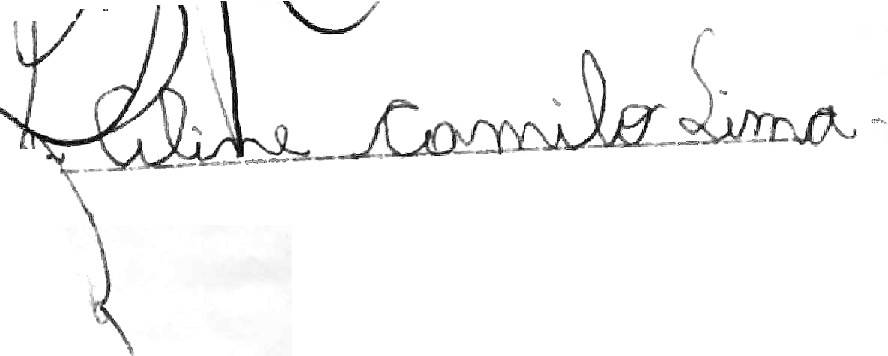 Aline Camilo Lima